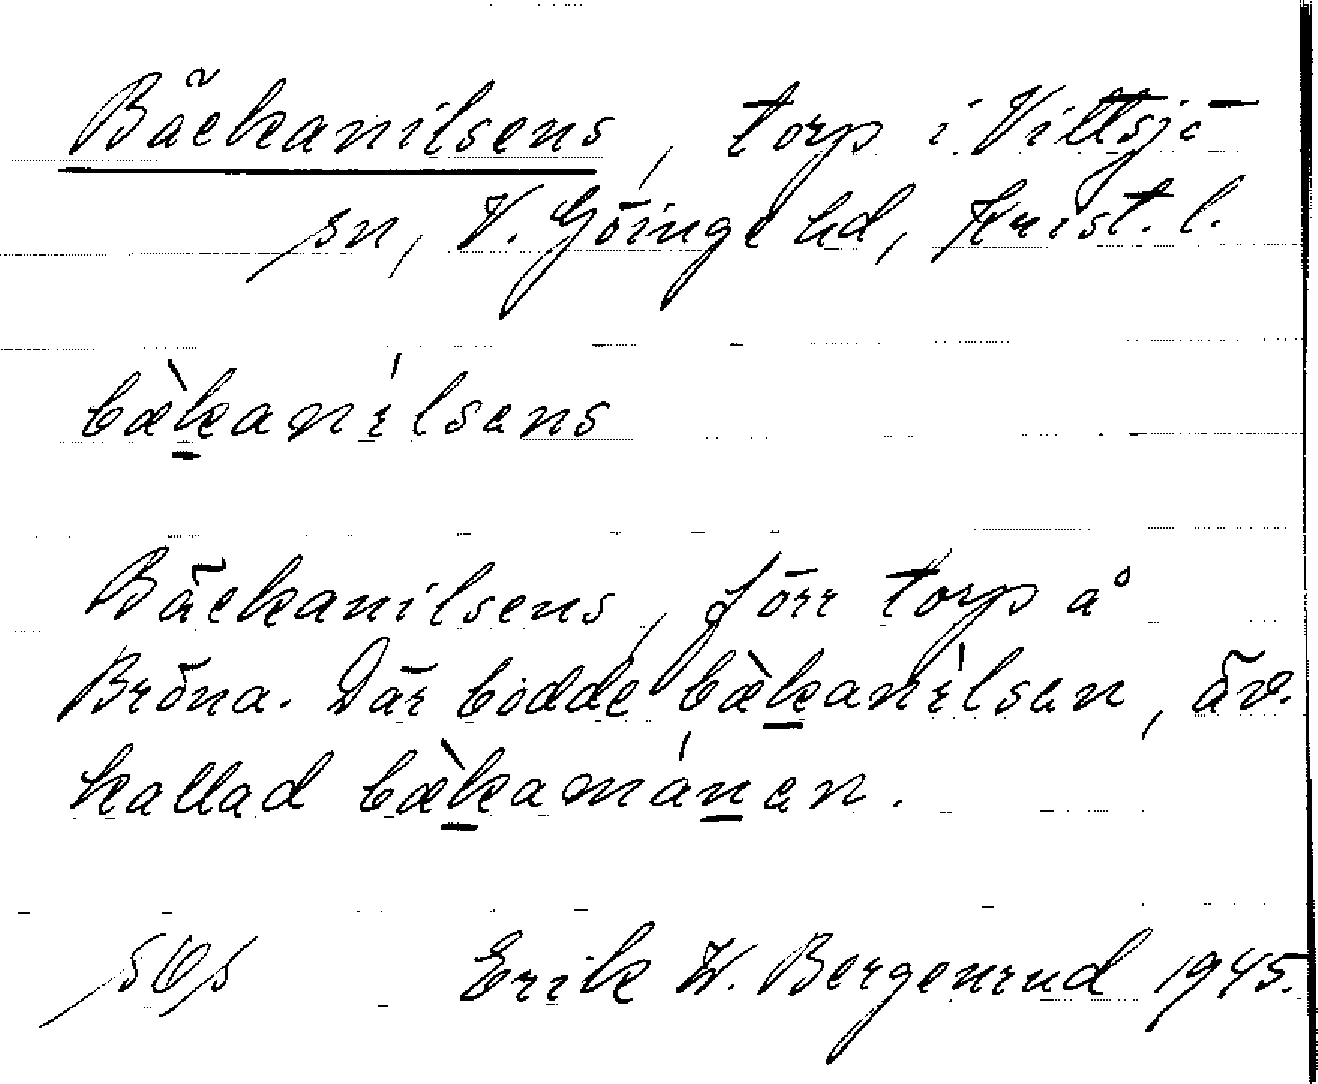 Bäckanilsens, torp i Vittsjö
sn, V. Göinge hd, Krist. l.
bæ̀kanílsens
Bäckanilsens, förr torp å
Bröna. Där bodde bæ̀kanílsen, äv.
kallad bæ̀kamánen.
Erik W. Bergenrud 1945.